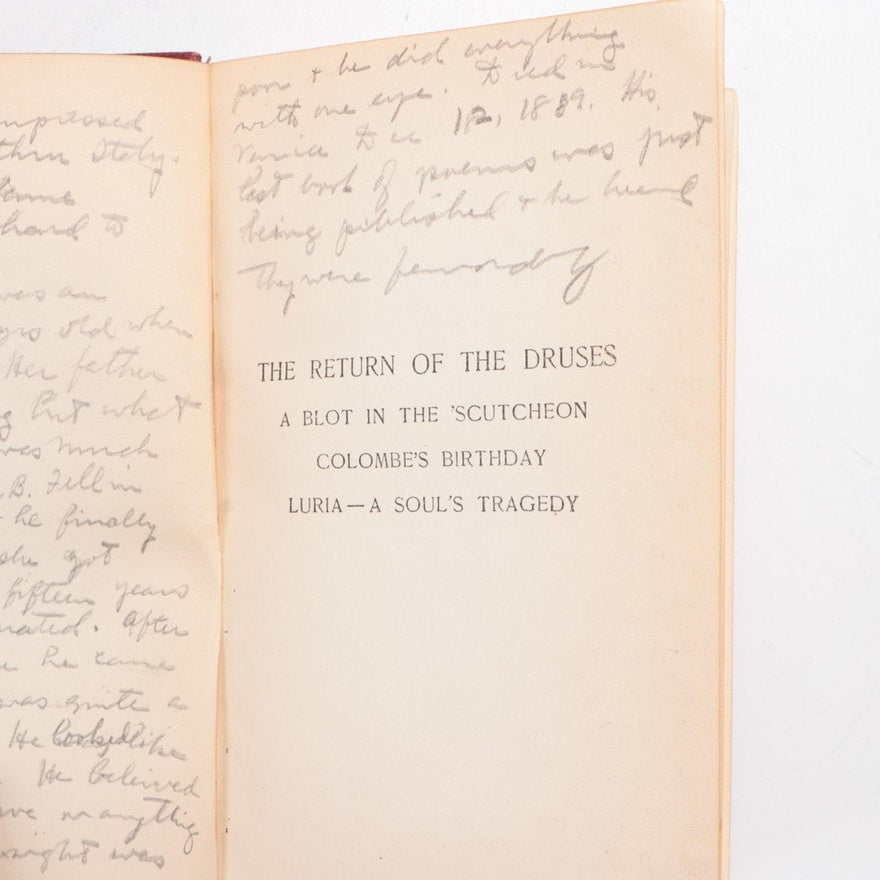 mpressed
thru Italy.
hard to
was an
yrs old when
Her father
g but what
was much
B. Fell in
he finally
she got
fifteen years
After
he came
was quite a
He looked like
He believed
anything
night was
poor + he did everything
with one eye. Died in
Venice Dec 12, 1889. His
last book of poems was just
being published + he heard
They were
THE RETURN OF THE DRUSES
A BLOT IN THE 'SCUTCHEON
COLOMBE'S BIRTHDAY
LURIA—A SOUL'S TRAGEDY